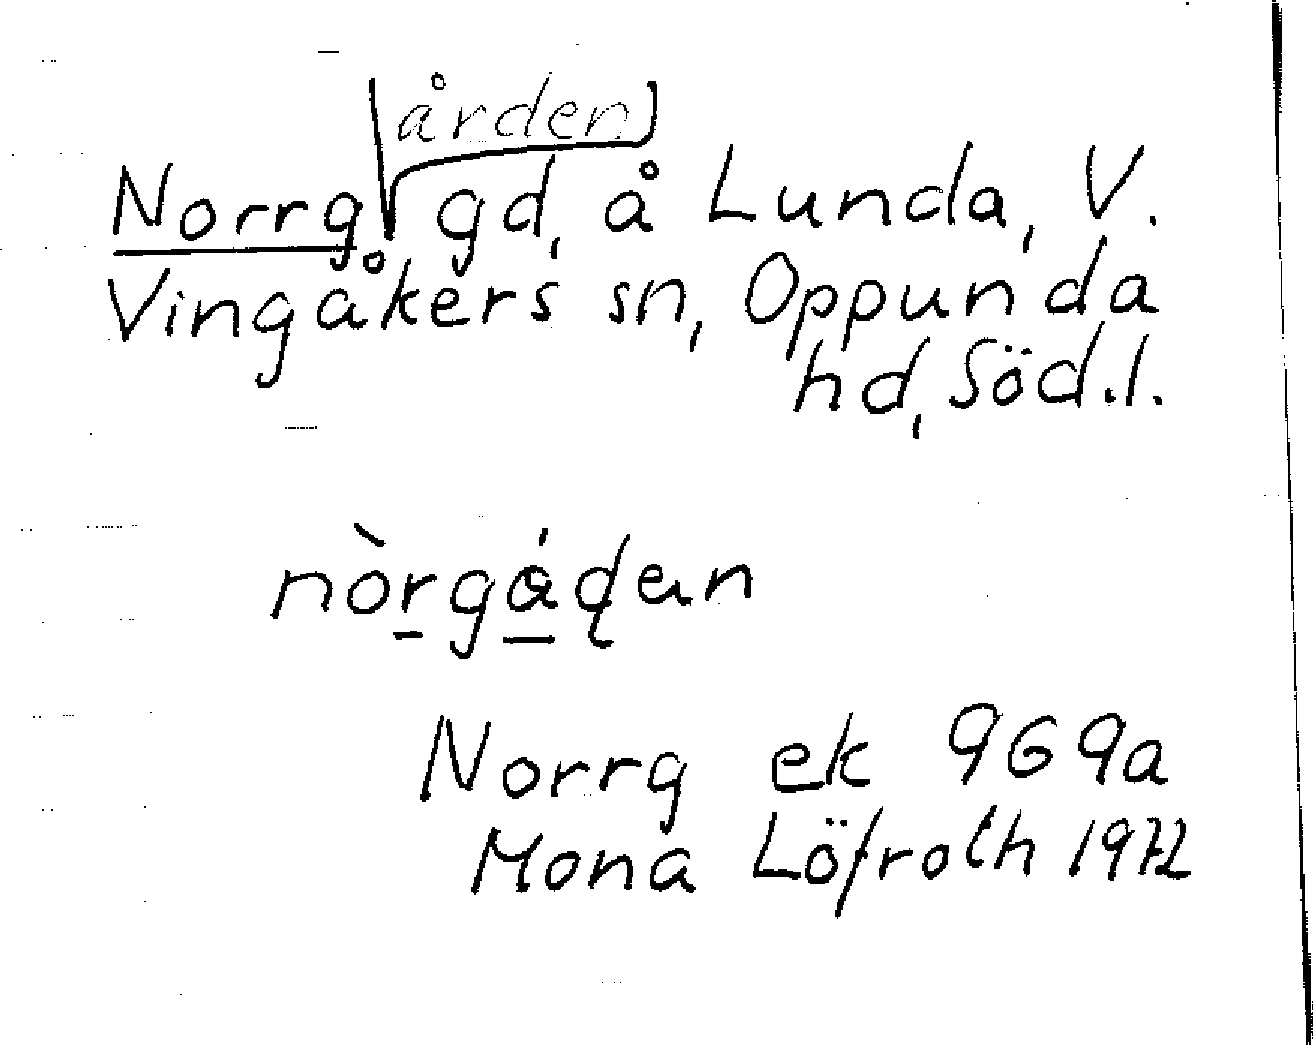 [ården]
Norrg gd, å Lunda, V.
Vingåkers sn, Oppunda
hd, Söd.l.
nòrgáɖen
Norrg ek 969a
Mona Löfroth 1972